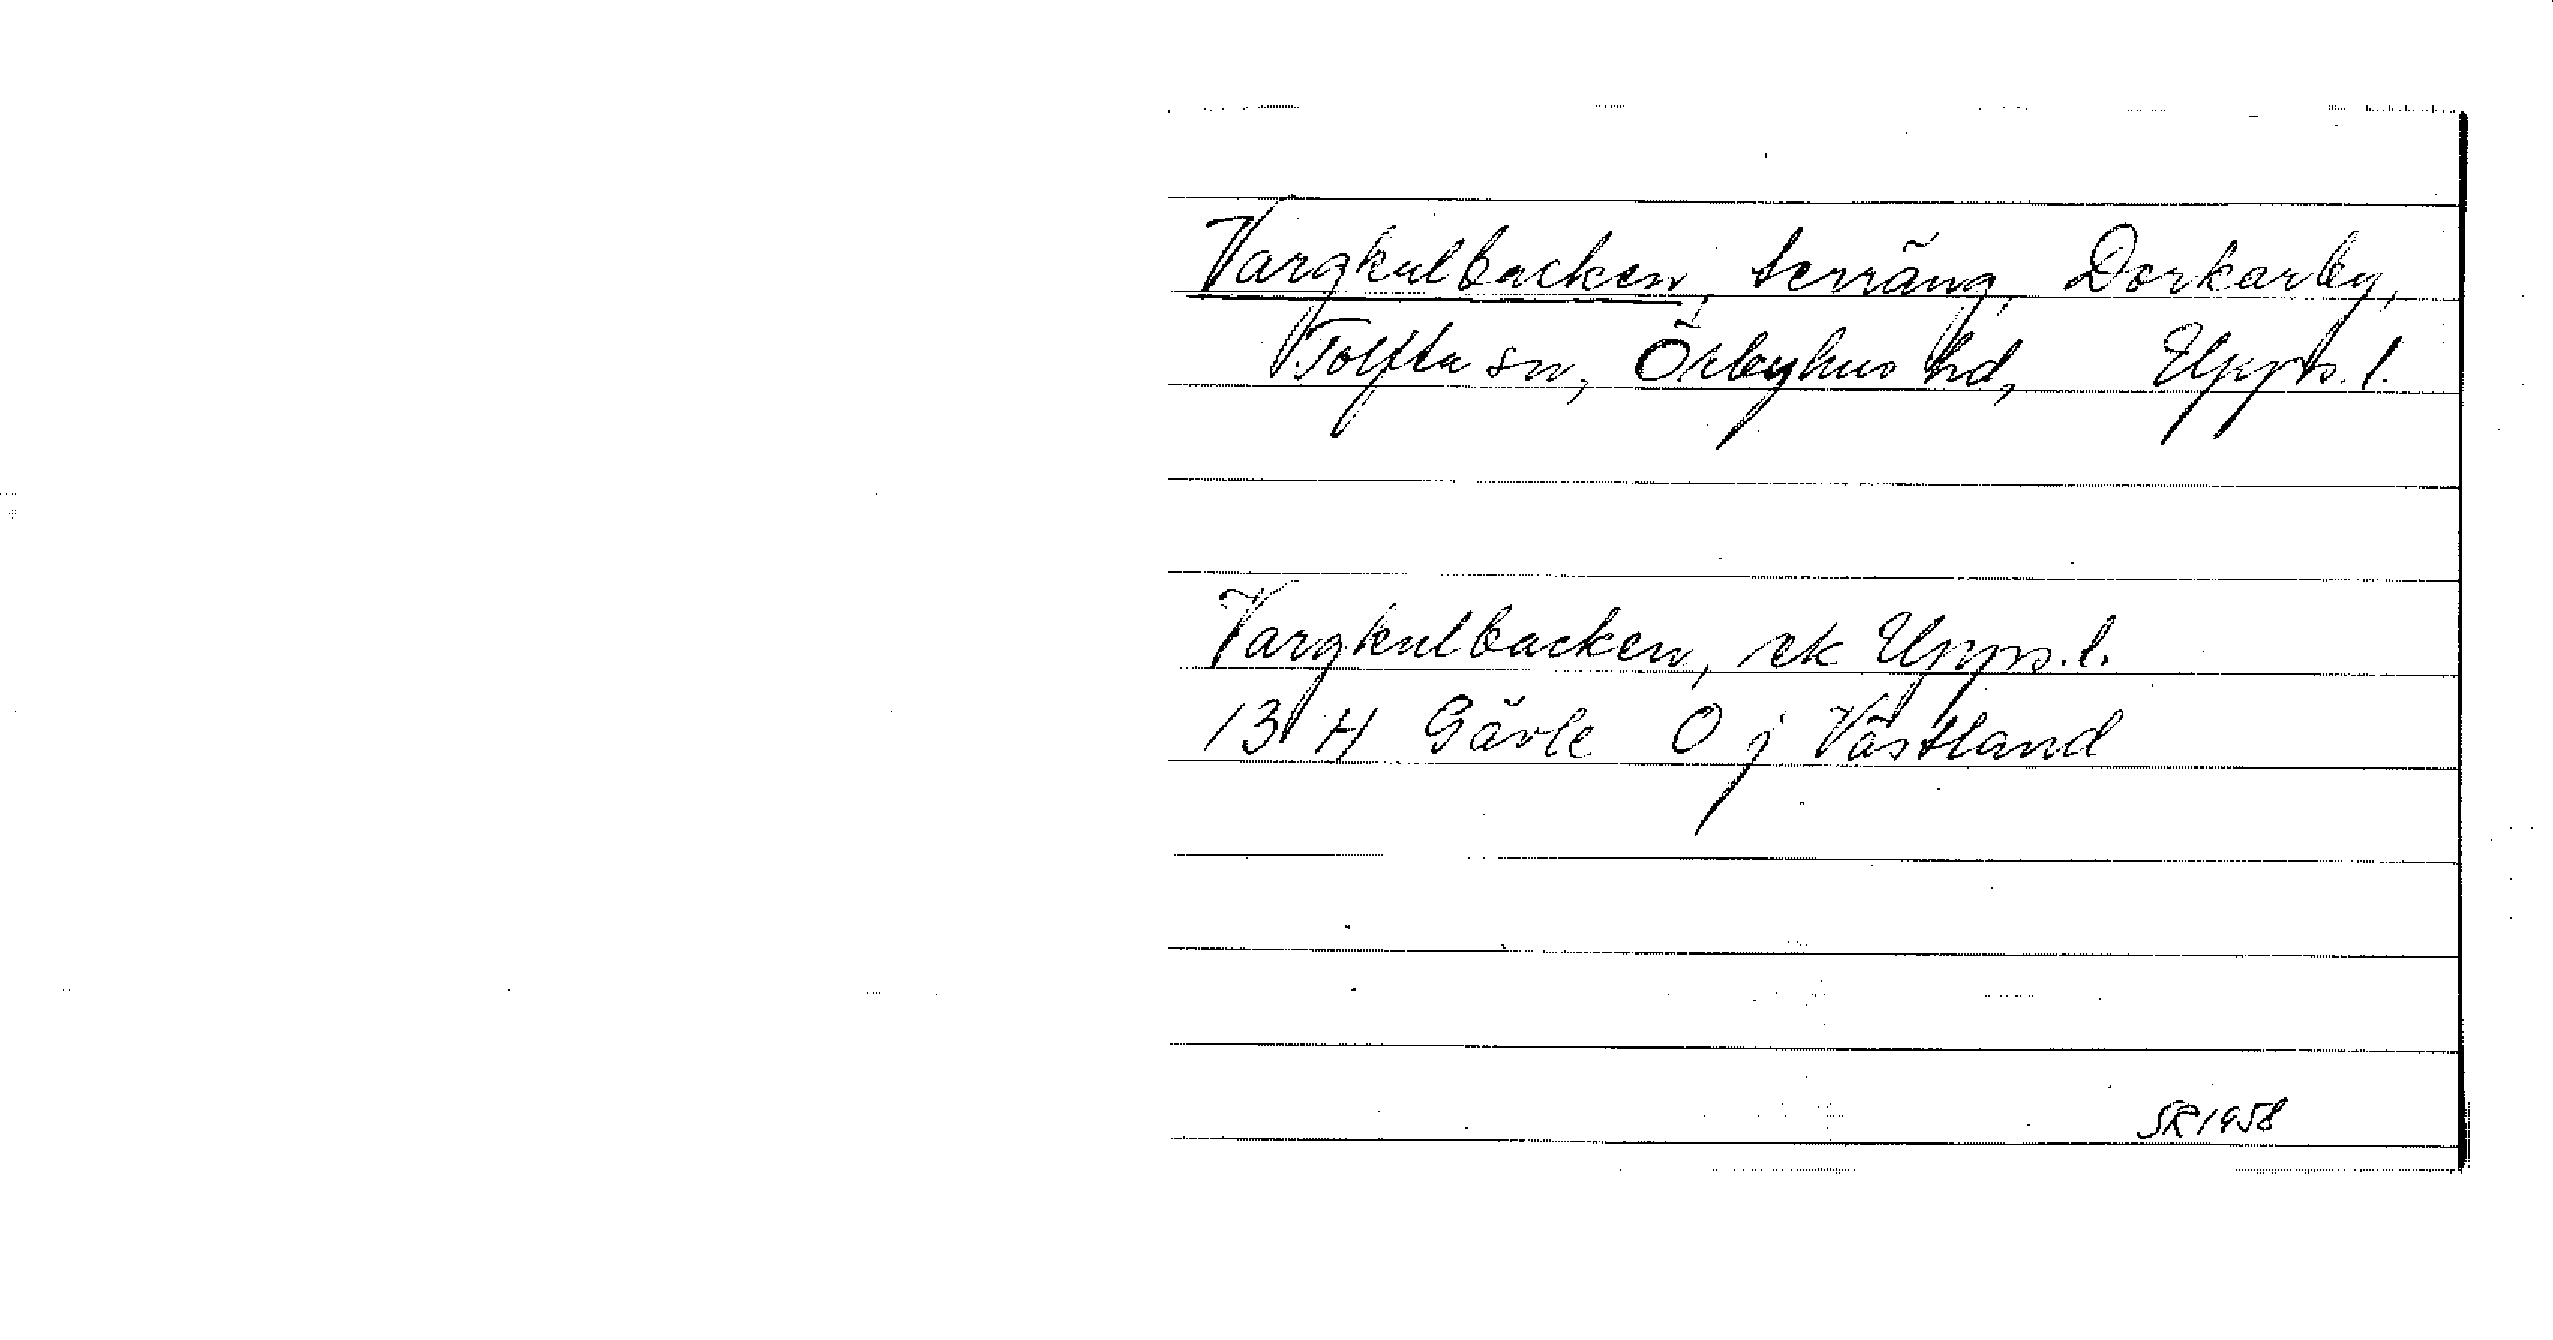 Vargkulbacken, terräng, Dorkarby,
Tolfta sn, Örbyhus hd, Upps. l.
Vargkulbacken, ek Upps. l.
13 H Gävle O j Västland
SR 1958